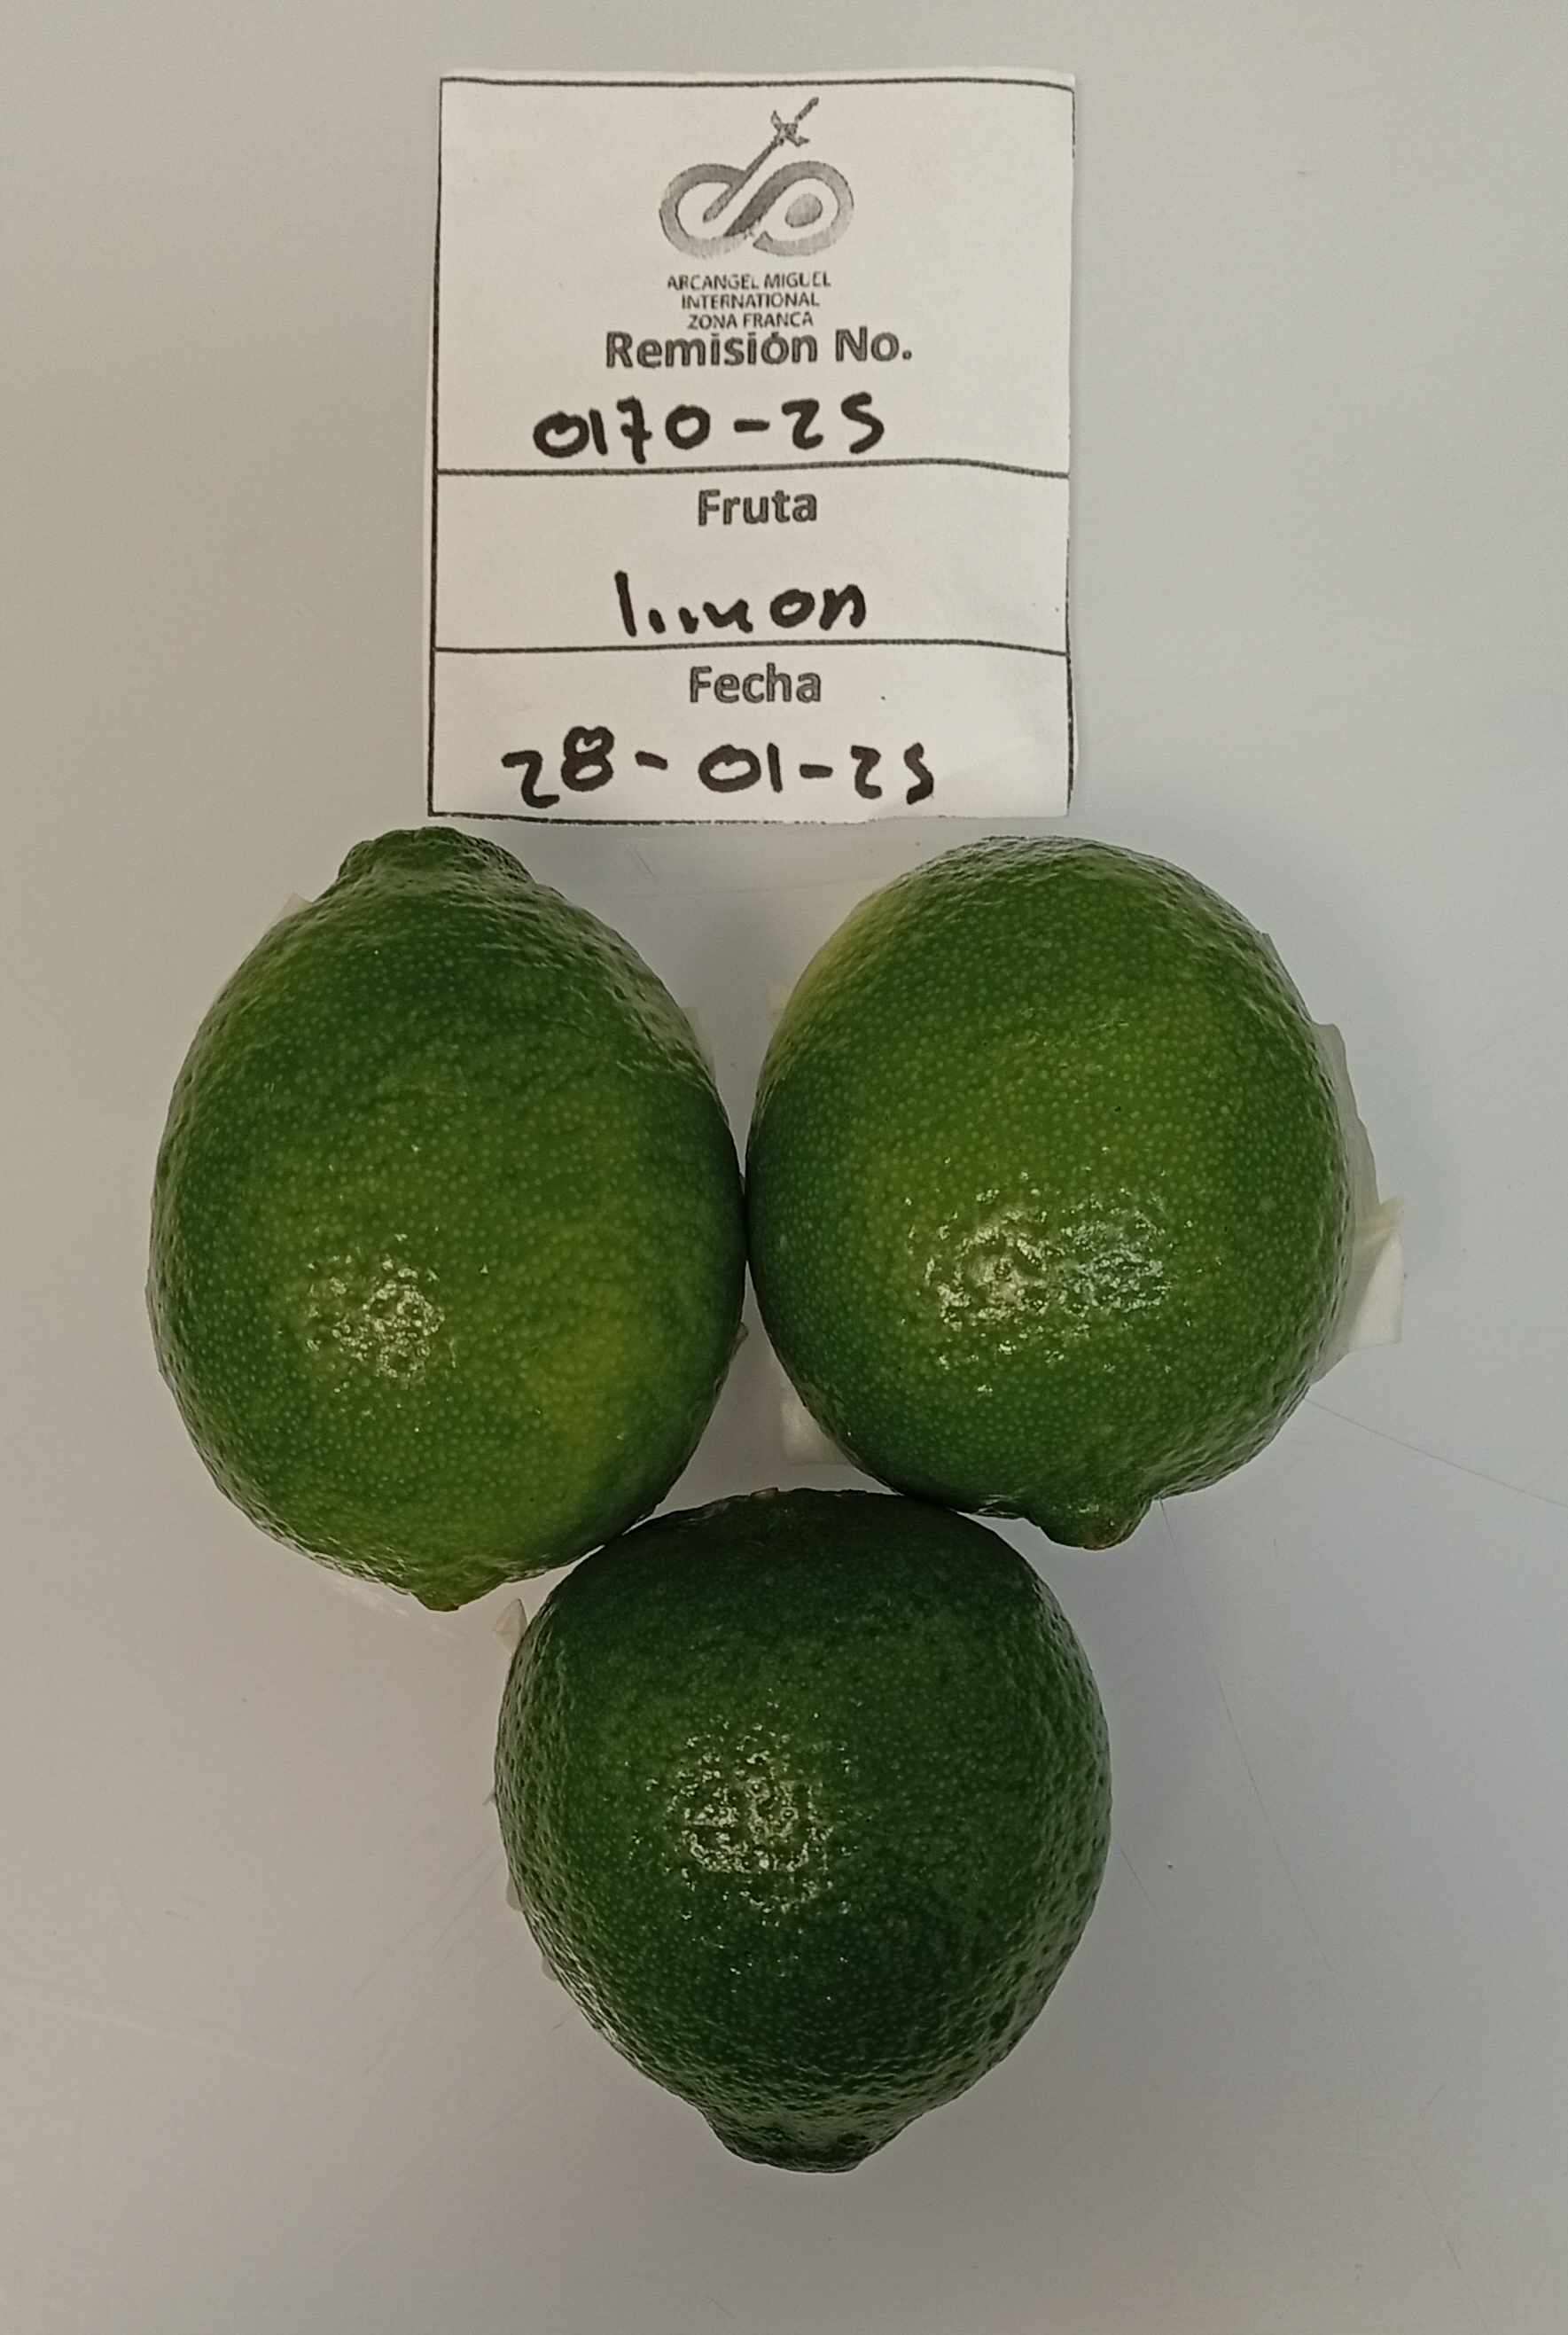 ARCANGEL MIGUEL
INTERNATIONAL
ZONA FRANCA
Remisión No.
0170-25
Fruta
limon
Fecha
28-01-25